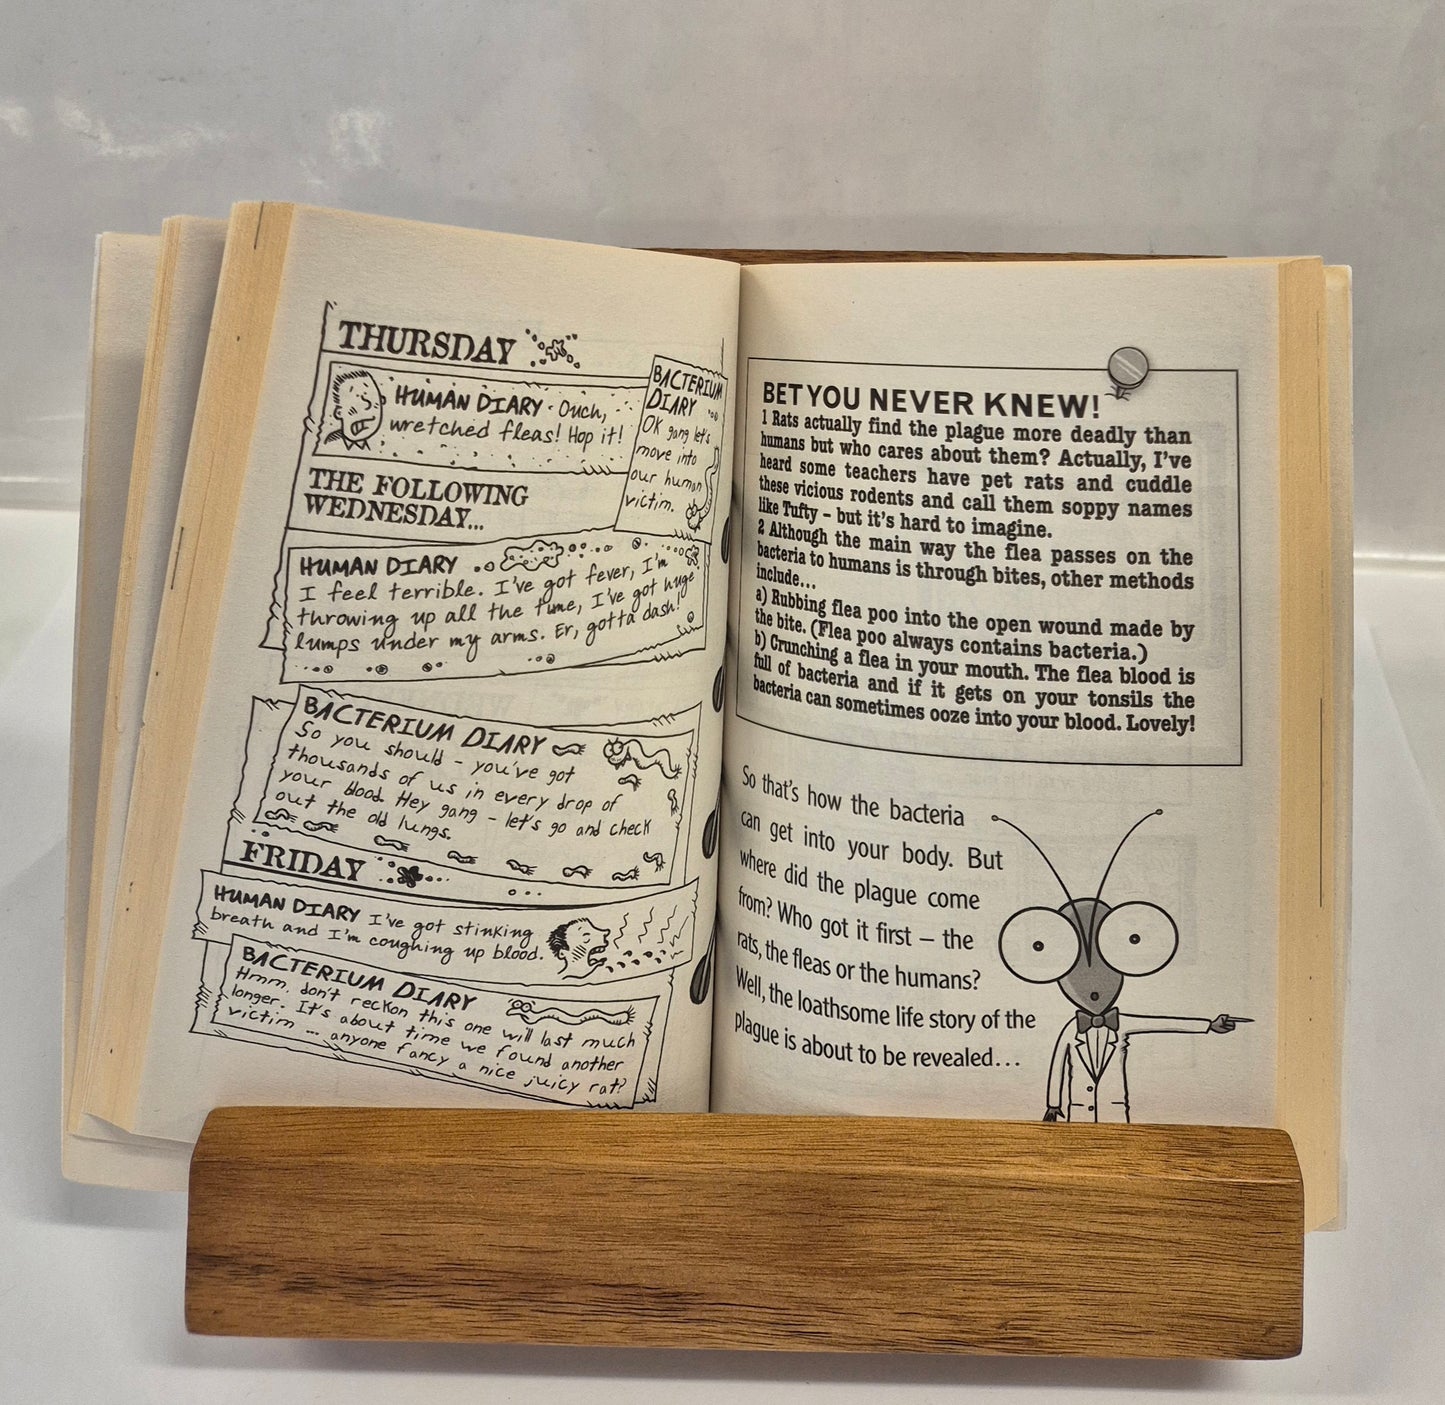 THURSDAY
HUMAN DIARY · Ouch,
wretched fleas! Hop it!
BACTERIUM
DIARY
OK gang let's
move into
our human
victim.
THE FOLLOWING
WEDNESDAY...
HUMAN DIARY
I feel terrible. I've got fever, I'm
throwing up all the time, I've got huge
lumps under my arms. Er, gotta dash!
BACTERIUM DIARY
So you should - you've got
thousands of us in every drop of
your blood. Hey gang - let's go and check
out the old lungs.
FRIDAY
HUMAN DIARY I've got stinking
breath and I'm coughing up blood.
BACTERIUM DIARY
Hmm, don't reckon this one will last much
longer. It's about time we found another
victim ... anyone fancy a nice juicy rat?
BET YOU NEVER KNEW!
1 Rats actually find the plague more deadly than
humans but who cares about them? Actually, I've
heard some teachers have pet rats and cuddle
these vicious rodents and call them soppy names
like Tufty – but it's hard to imagine.
2 Although the main way the flea passes on the
bacteria to humans is through bites, other methods
include...
a) Rubbing flea poo into the open wound made by
the bite. (Flea poo always contains bacteria.)
b) Crunching a flea in your mouth. The flea blood is
full of bacteria and if it gets on your tonsils the
bacteria can sometimes ooze into your blood. Lovely!
So that's how the bacteria
can get into your body. But
where did the plague come
from? Who got it first – the
rats, the fleas or the humans?
Well, the loathsome life story of the
plague is about to be revealed...